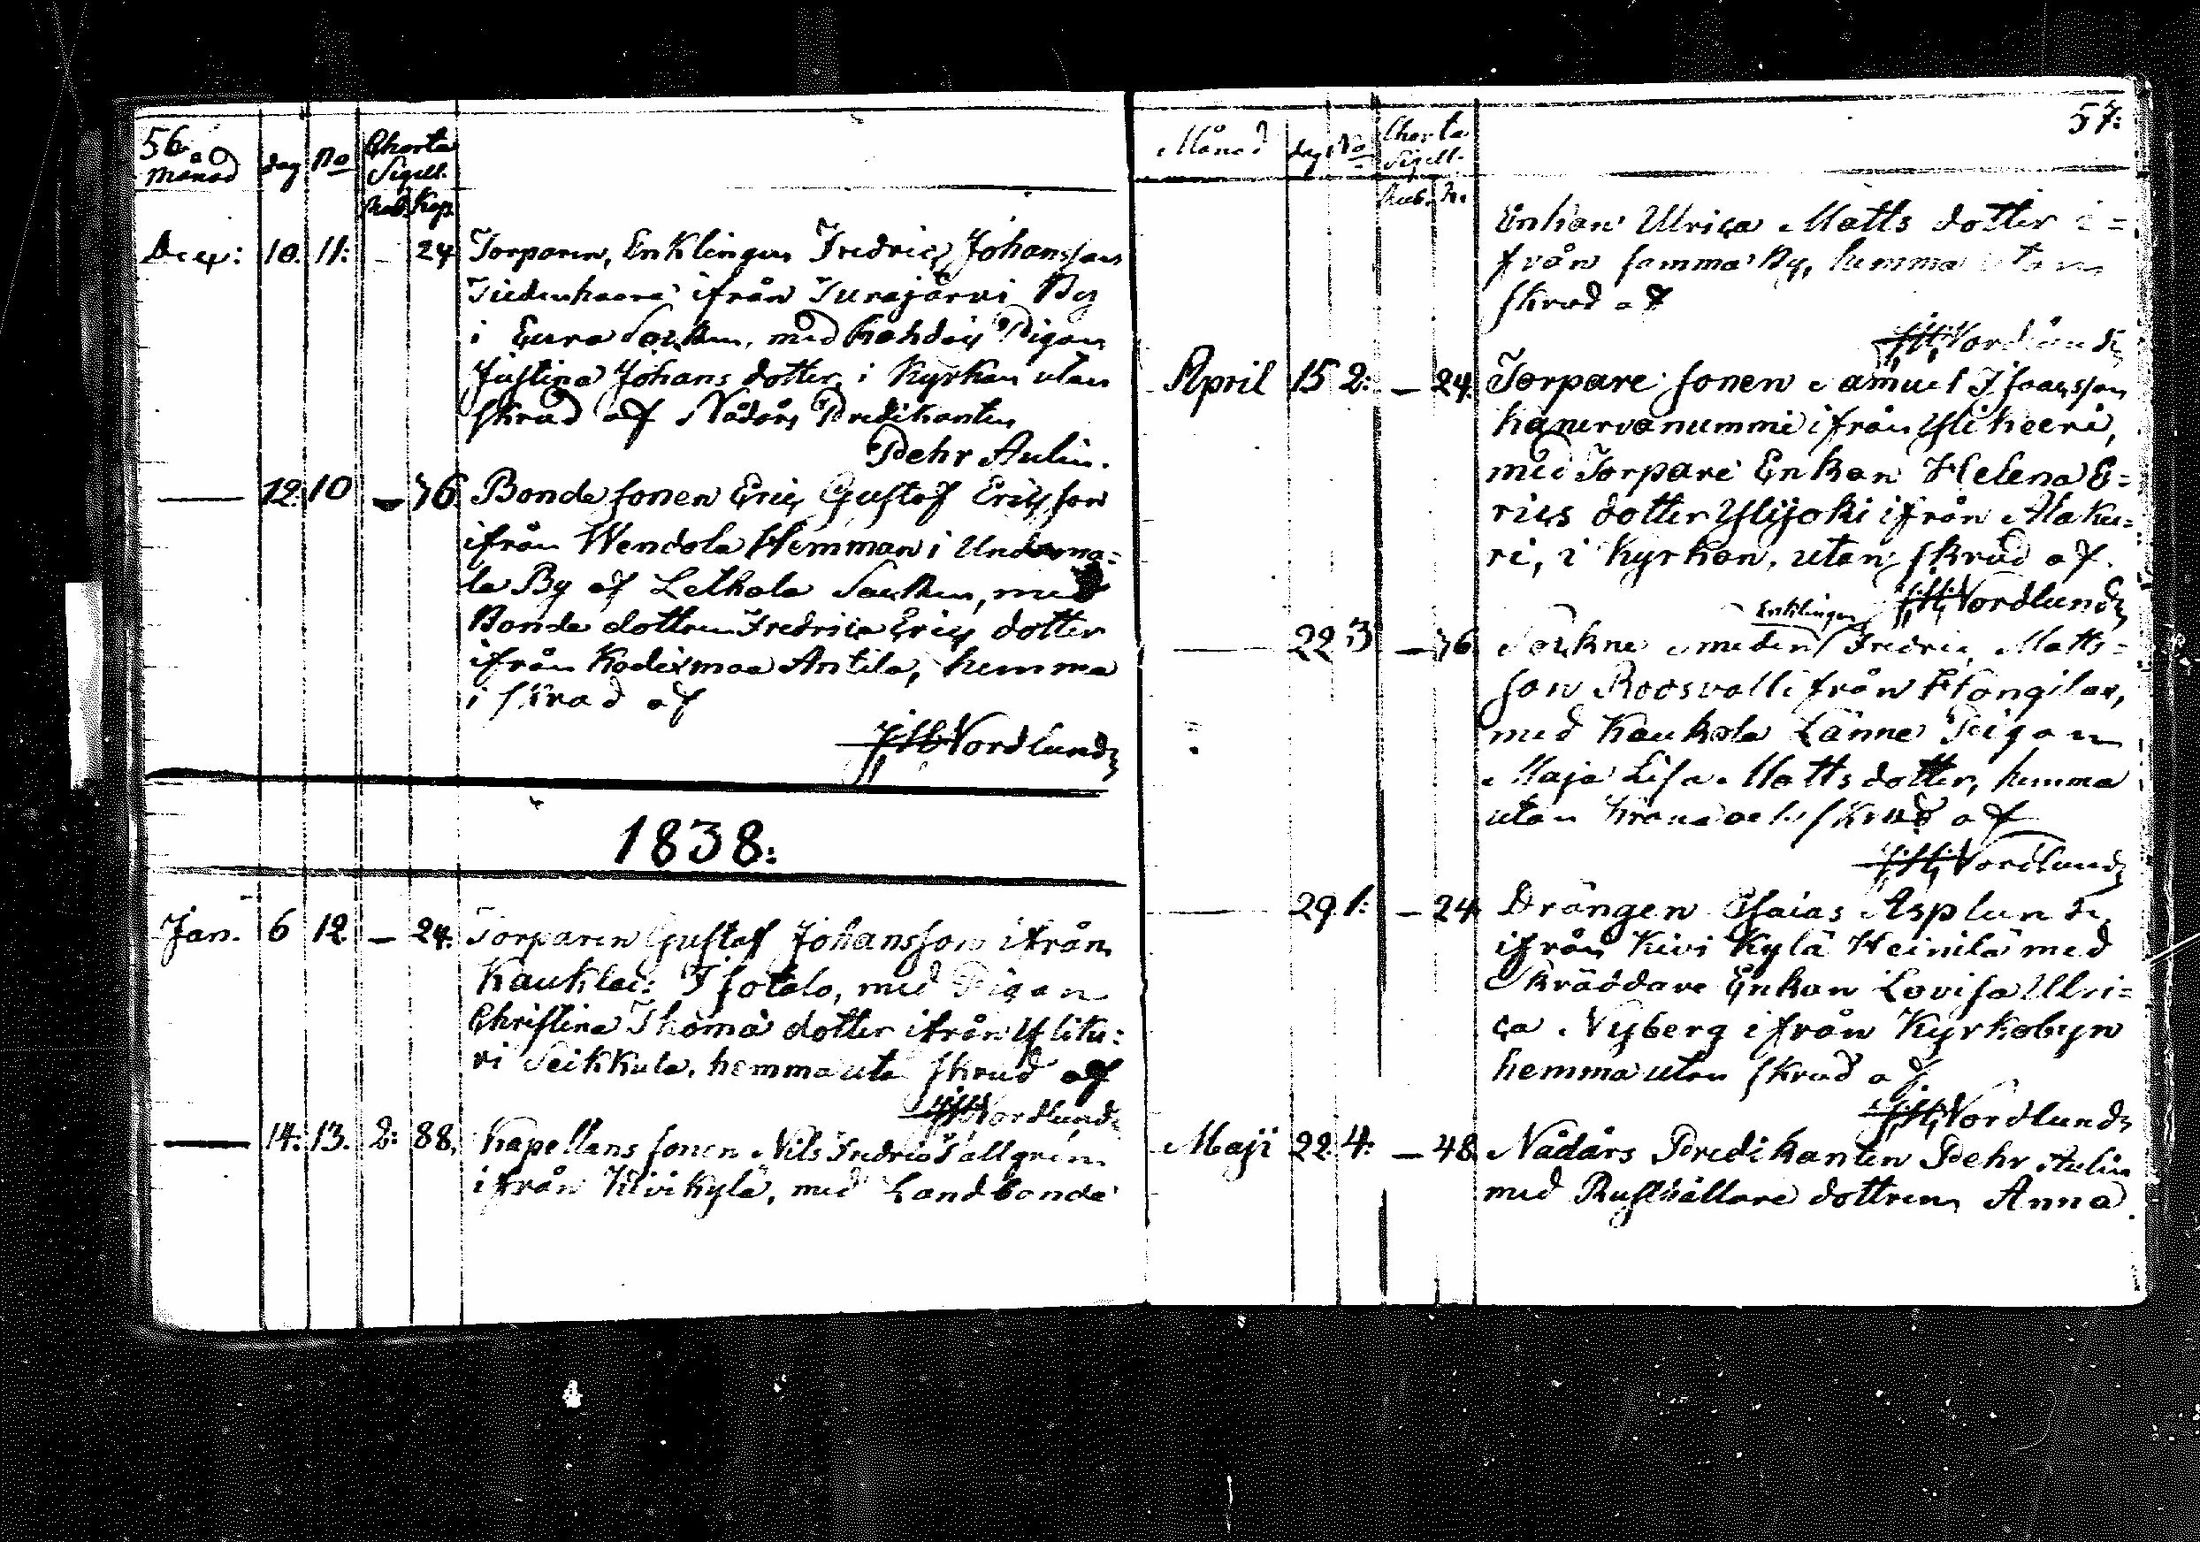 56.
Månad dag No Charta
Sigill.
Rub. Kop.
Dec: 10. 11: - 24 Torparen, Enklingen Fredric Johansson
Tiedenhaara ifrån Turajärvi By
i Eura Socken, med Pigan
Justina Johans dotter, i Kyrkan utan
skrud af Nådårs Predikanten
Pehr Aulin.
— 12. 10 - 76. Bonde sonen Eric Gustaf Ericsson
ifrån Wendola Hemman i Undama=
la By af Lethala Socken, med
Bonde dottren Fredrica Erics dotter
ifrån Kodixmaa Antila, hemma
i skrud af
JH Nordlund
1838:
Jan. 6 12. - 24. Torparen Gustaf Johansson ifrån
Kauklais Isotalo, med Pigan
Christina Thoma dotter ifrån Ylitu:
ri Seikkula, hemma uta skrud af
JH Nordlund
— 14: 13. 2: 88. Kapellans sonen Nils Fredric Tallgren
ifrån Kivikylä, med Landbonde
57:
Månad dag No Charta
Sigill.
Rub. K.
Enkan Ulrica Matts dotter i=
från samma By, hemma utan
skrud af
JH Nordlund
April 15 2: - 24. Torpare sonen Samuel Isaacsson
Kanervanummi ifrån Ylikeeri,
med Torpare Enkan Helena E=
rics dotter Ylijoki ifrån Alakee=
ri, i Kyrkan, utan skrud af.
JH Nordlund
Enklingen
— 22 3 - 76 Sockne smeden Fredric Matts=
son Roosvall ifrån Hongilax,
med Kaukola Länne Pigan
Maja Lisa Matts dotter, hemma
utan Krona och skrud af
JH Nordlund
— 29. 1: - 24 Drängen Esaias Asplund
ifrån Kivi Kylä Heinilä med
Skräddare Enkan Lovisa Ulri=
ca Nyberg ifrån Kyrkobyn
hemma utan skrud af
JH Nordlund
Maji 22. 4: - 48. Nådårs Predikanten Pehr Aulin
med Rusthållare dottren Anna